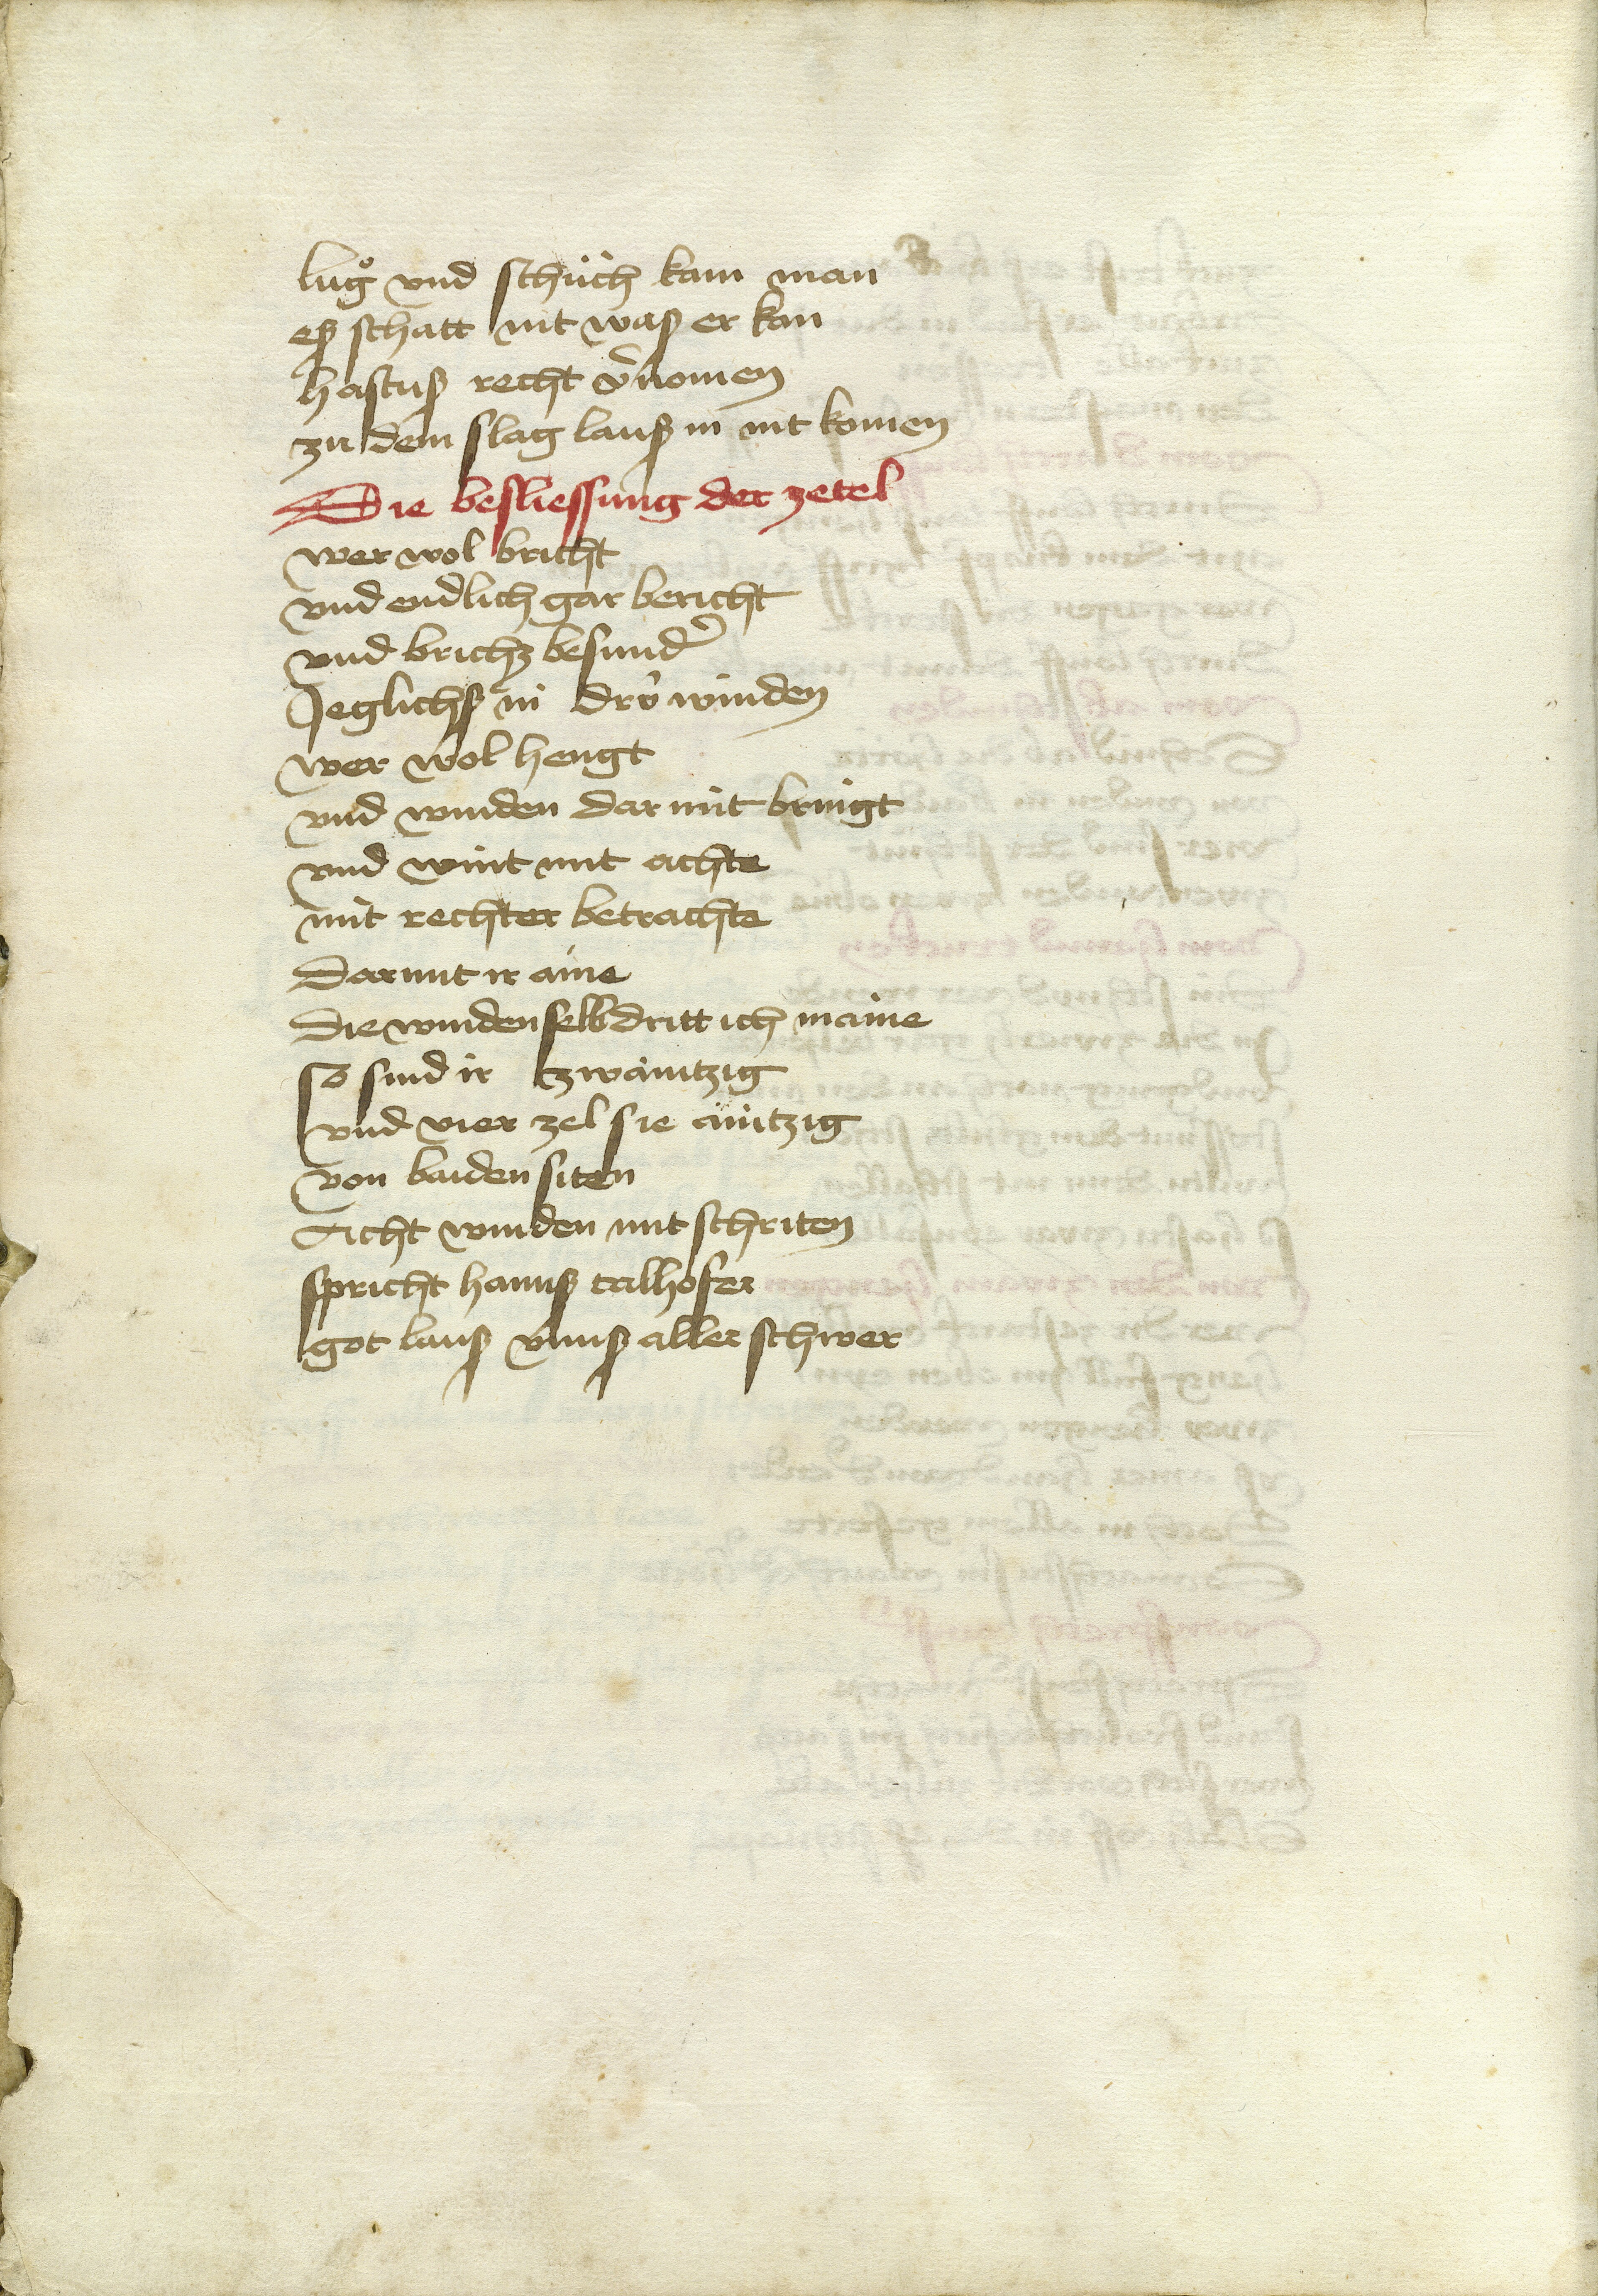 lůg vnd schüch kain man
eß schatt nit waß er kan
hastuß recht v̄nomen
zů dem slag lauß in nit komen
Die besliessung der zetel
wer wol bricht
vnd endlich gar bericht
vnd brichz besunder̄
Jeglichß in drÿ winden
wer wol hengt
vnd winden dar mit bringt
vnd wint mit achte
mit rechter betrachte
Darmit ir aine
Die winden selb dritt ich maine
so sind ir zwaintzig
vnd vier zel sie aintzig
von baiden siten
Acht winden mit schriten
spricht hannß talhofer
got lauß vnnß aller schwer